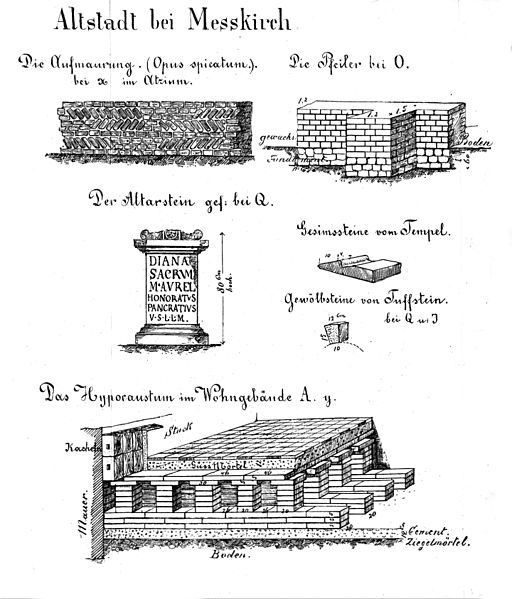 Altstadt bei Messkirch
Die Aufmaurung. (Opus spicatum.).
bei x im Atrium.
Die Pfeiler bei O.
1,2
1,2
1,5
gewachs.
Boden
Fundament
Der Altarstein gef: bei Q.
DIANAE
SACRVM
M·AVREL
HONORATVS
PANCRATIVS
V·S·L·L·M·
80 Cm
hoch.
Gesimssteine vom Tempel.
10
Gewölbsteine von Tuffstein.
bei Q u. J
12 Cm
10
Das Hypocaustum im Wohngebäude A. y.
Stuck
Kacheln
Gussmörtel
Mauer.
20
20
20
20
Cement.
Ziegelmörtel.
Boden.